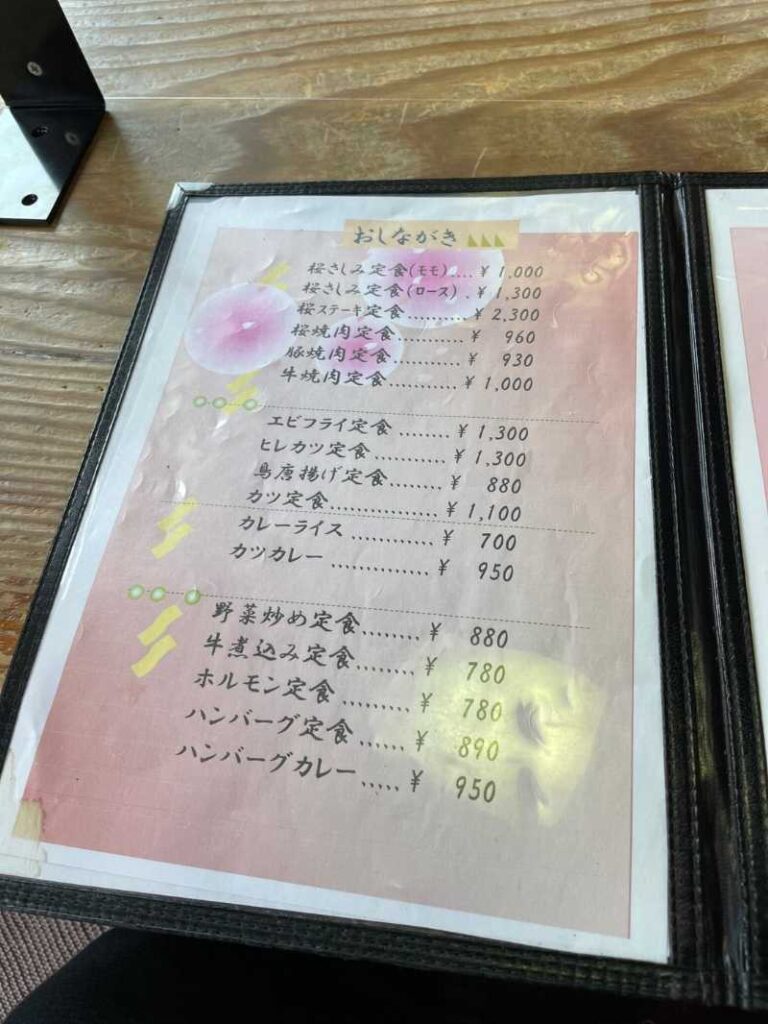 おしながき
桜さしみ定食(モモ)....¥ 1,000
桜さしみ定食(ロース).¥ 1,300
桜ステーキ定食..........¥ 2,300
桜焼肉定食...........¥ 960
豚焼肉定食...........¥ 930
牛焼肉定食...........¥ 1,000
エビフライ定食........¥ 1,300
ヒレカツ定食...........¥ 1,300
鳥唐揚げ定食........¥ 880
カツ定食................¥ 1,100
カレーライス...........¥ 700
カツカレー...............¥ 950
野菜炒め定食........¥ 880
牛煮込み定食........¥ 780
ホルモン定食...........¥ 780
ハンバーグ定食......¥ 890
ハンバーグカレー.....¥ 950